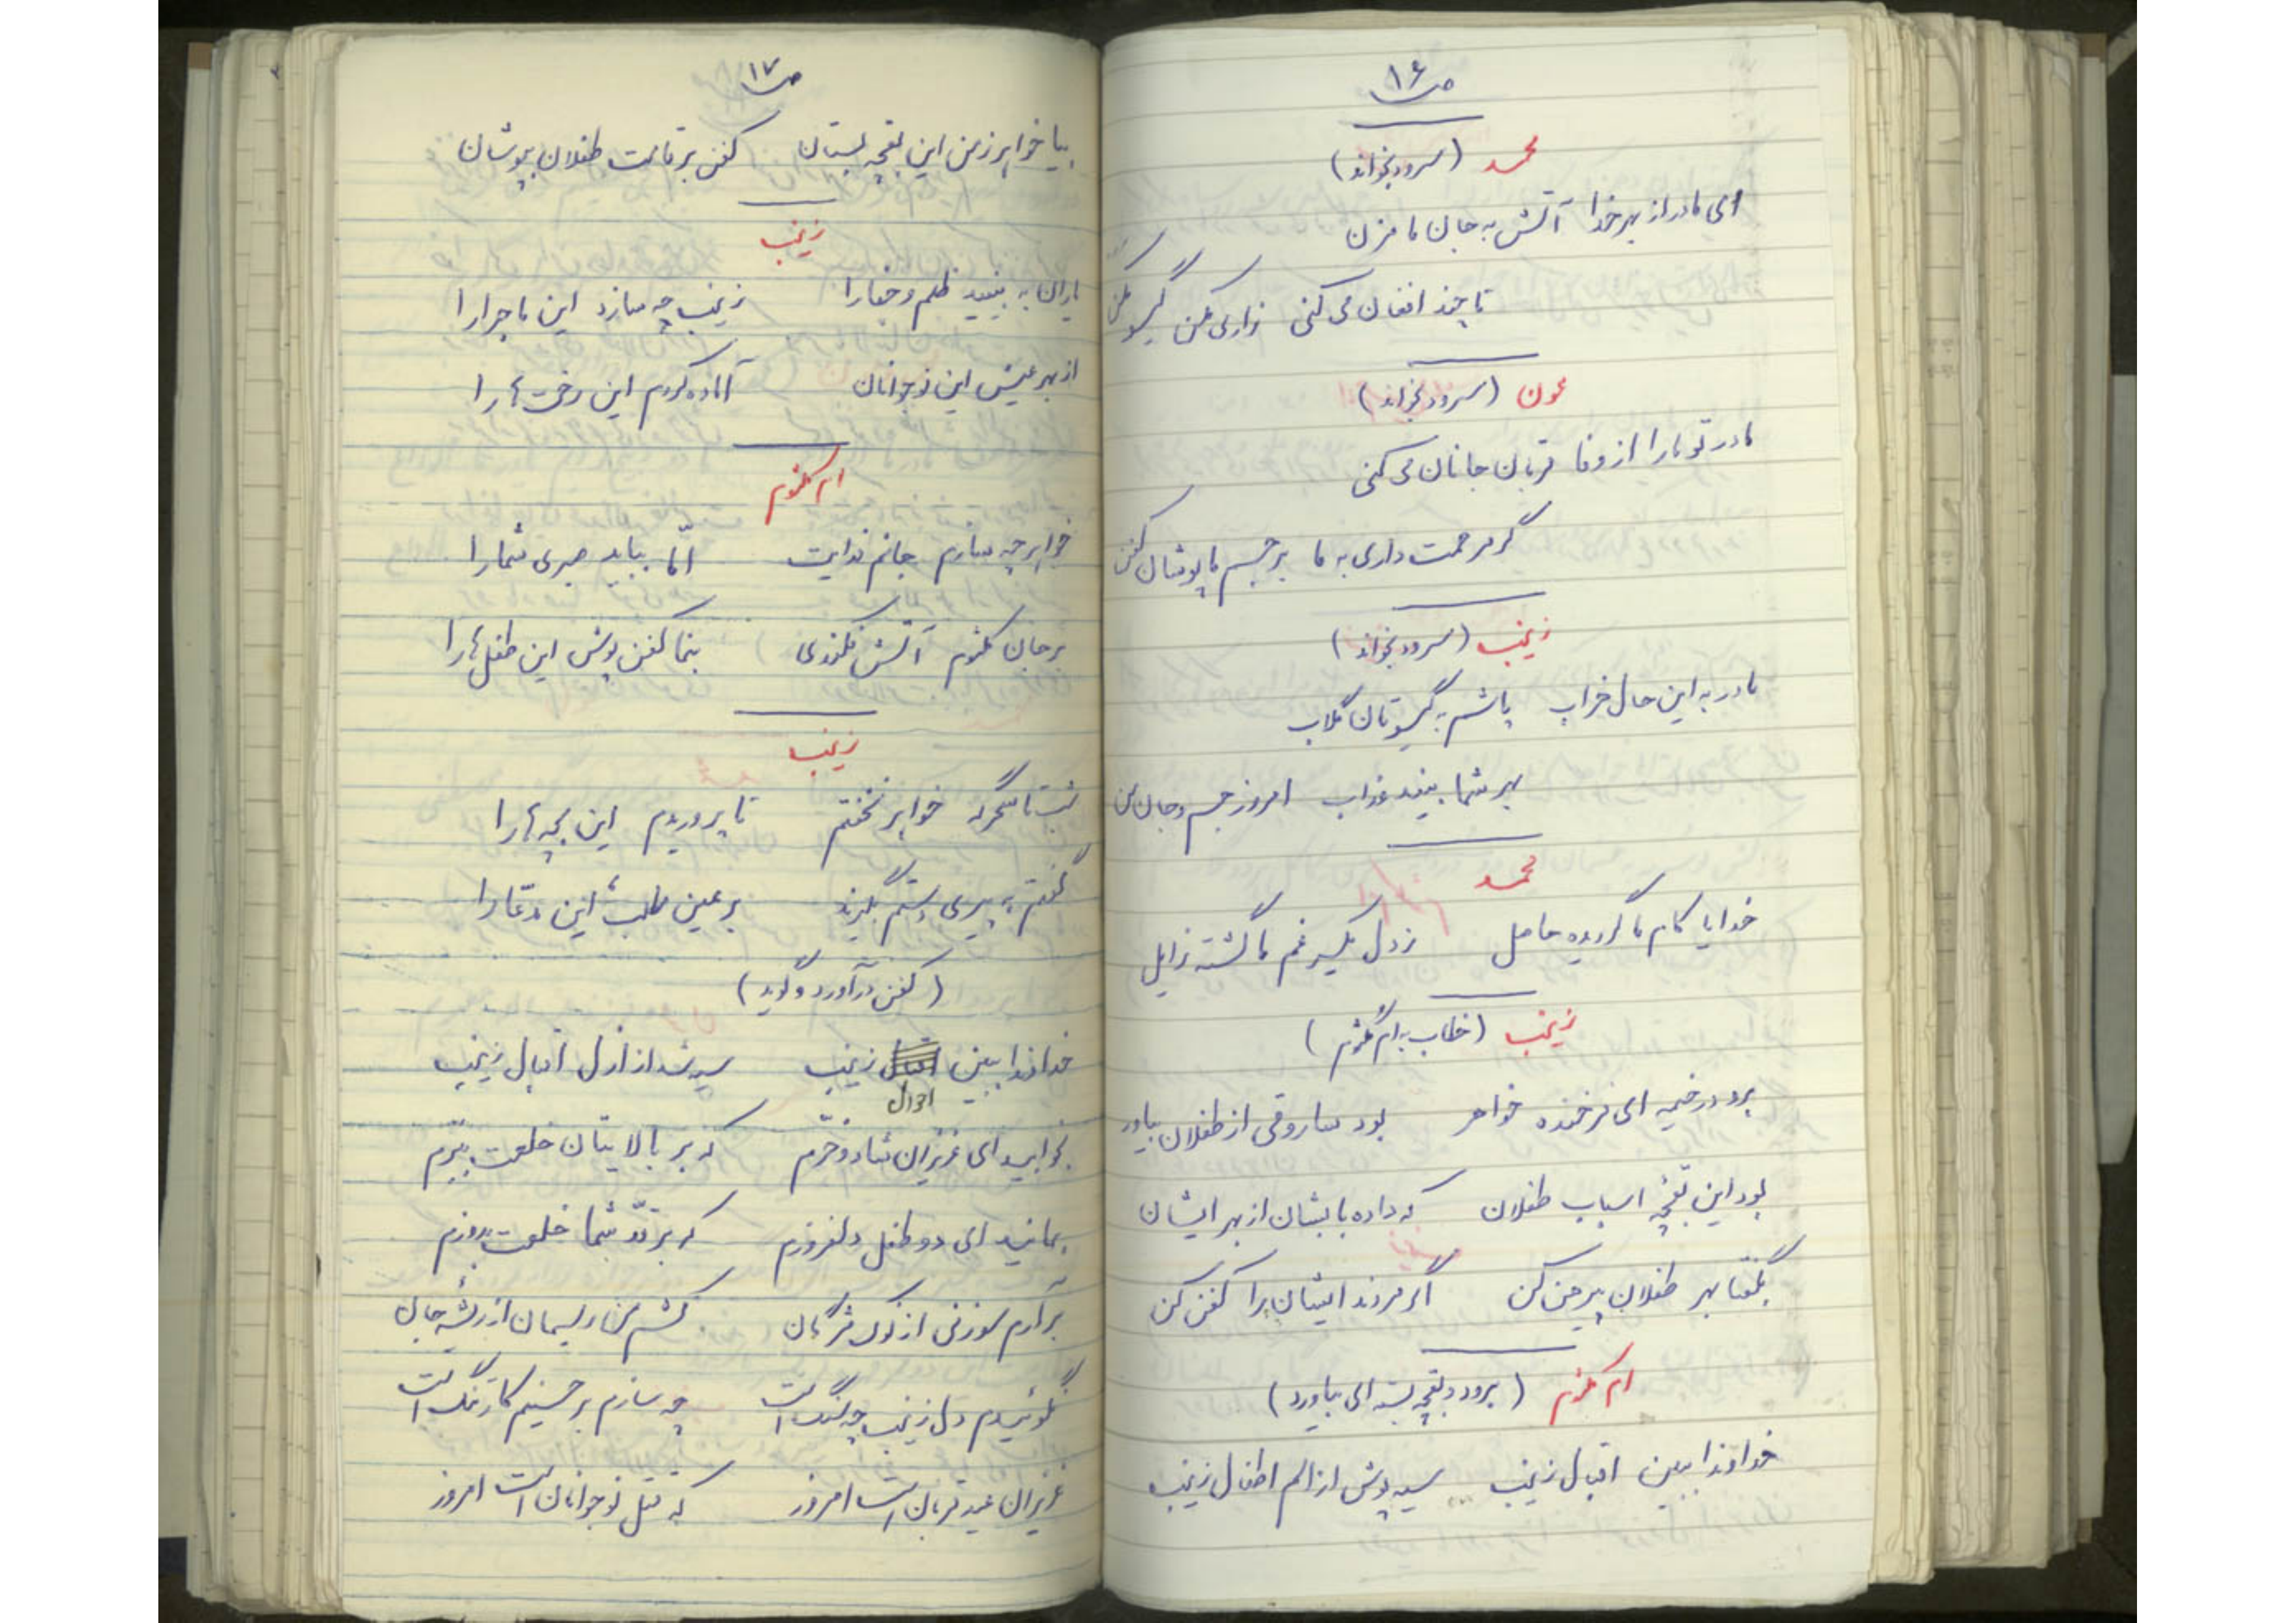 ص۱۶
محمد (سرود بخواند)
ای مادر از بهر خدا آتش به جان ما مزن
تا چند افغان می کنی زاری مکن گیسو مکن
عون (سرود بخواند)
مادر تو ما را از وفا قربان جانان می کنی
گر مرحمت داری به ما بر جسم ما پوشان کفن
زینب (سرود بخواند)
مادر به این حال خراب پاشم به گیسوتان گلاب
بهر شما بیند عذاب امروز جسم و جان من
محمد
خدایا کام ما گردیده حاصل ز دل یکسر غم ما گشته زایل
زینب (خطاب به ام کلثوم)
برو در خیمه ای فرخنده خواهر بود ساروقی از طفلان بیاور
بود این بقچه اسباب طفلان که داده بابشان از بهر ایشان
بگفتا بهر طفلان پیرهن کن اگر مردند ایشان را کفن کن
ام کلثوم (برود و بقچه بسته ای بیاورد)
خداوندا ببین اقبال زینب سیه پوش از الم اطفال زینب
ص۱۷
بیا خواهر ز من این بقچه بستان کفن بر قامت طفلان بپوشان
زینب
یاران به بینید ظلم و جفا را زینب چه سازد این ماجرا را
از بهر عیش این نوجوانان آماده کردم این رخت ها را
ام کلثوم
خواهر چه سازم جانم فدایت امّا بباید صبری شما را
بر جان کلثوم آتش فکندی بنما کفن پوش این طفل ها را
زینب
شب تا سحرگه خواهر نخفتم تا پروریدم این بچه ها را
گفتم به پیری دستم بگیرند بر عین طلب این مدّعا را
(کفن در آورد و گوید)
خداوندا ببین احوال زینب سیه شد از ازل اقبال زینب
بخوابید ای عزیزان شاد و خرّم که بر بالایتان خلعت ببرّم
بمانید ای دو طفل دلفروزم که بر قدّ شما خلعت بدوزم
برآرم سوزنی از نوک مژگان کشم من ریسمان از رشته جان
نگوئیدم دل زینب چه سنگ است چه سازم بر حسینم کار تنگ است
عزیزان عید قربان است امروز که قتل نوجوانان است امروز